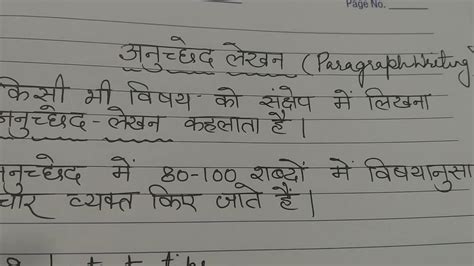 Page No.
अनुच्छेद लेखन (Paragraph Writing
किसी भी विषय को संक्षेप में लिखना
अनुच्छेद - लेखन कहलाता है।
नुच्छेद में 80-100 शब्दों में विषयानुसा
चार व्यक्त किए जाते हैं।